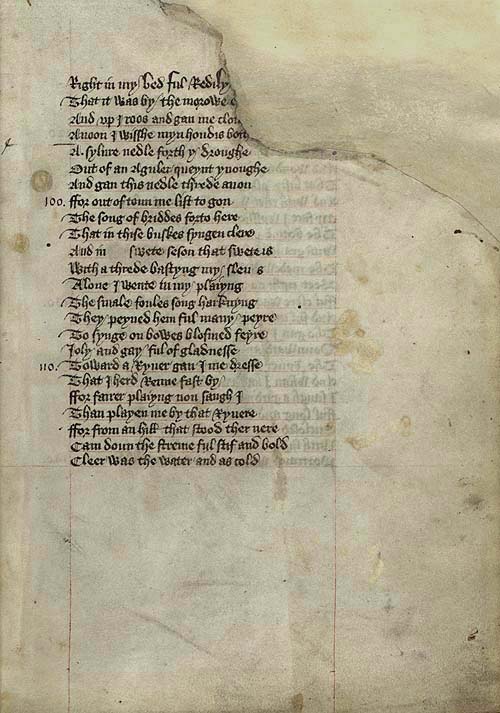 Right in my bed ful Redily
That it was by the morowe e
And vp I roos and gan me clo
Anoon I wisshe myn hondis bo
A sylure nedle forth y droughe
Out of an Aguler queynt ynoughe
And gan this nedle threde anon
100. ffor out of toun me list to gon
The song of briddes forto here
That in thise buskes syngen clere
And in swete seson that swete is
With a threde bastyng my sleu s
Alone I wente in my plaiyng
The smale foules song harknyng
They peyned hem ful many peyre
To synge on bowes blosmed feyre
Joly and gay ful of gladnesse
110. Toward a Ryuer gan I me dresse
That I herd Renne fast by
ffor fairer plaiyng non saugh I
Than playen me by that Ryuere
ffor from an hill that stood ther nere
Cam doun the streme ful stif and bold
Cleer was the water and as cold